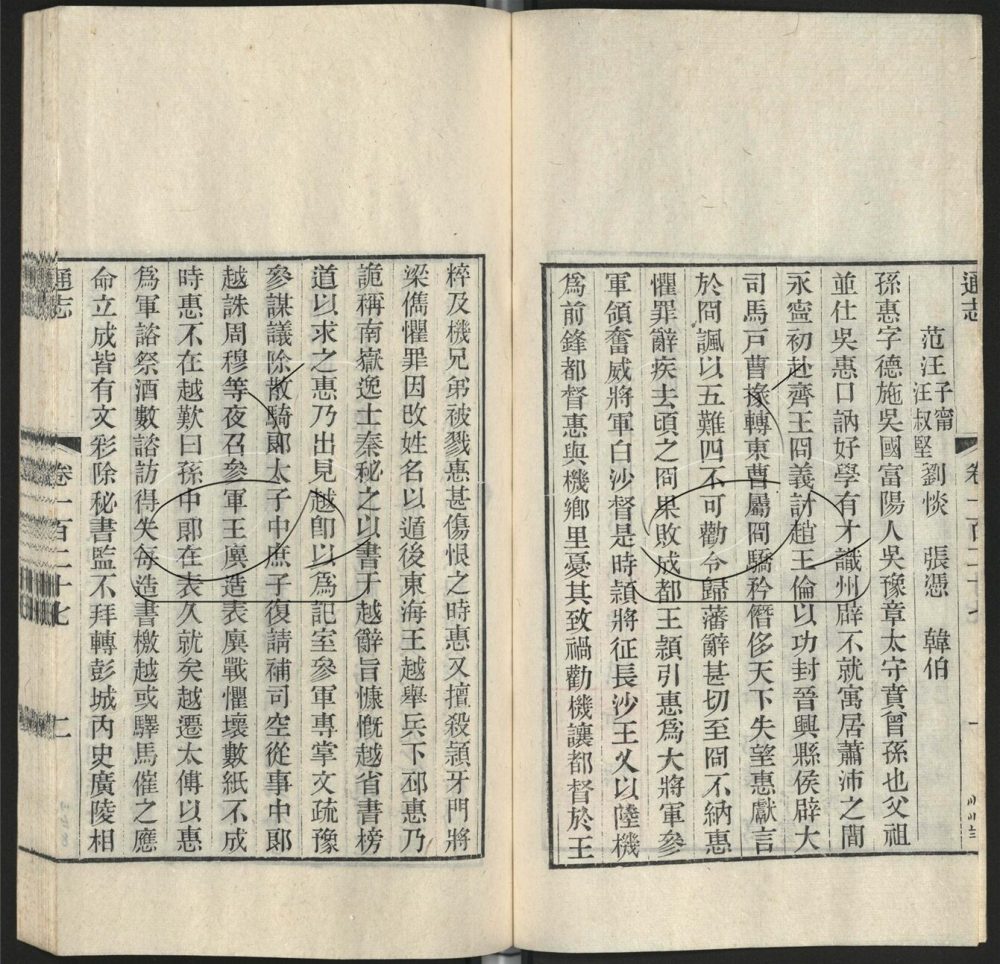 通志 卷一百二十七 一
范汪 子甯 汪叔堅 劉惔 張憑 韓伯
孫惠字德施吳國富陽人吳豫章太守賁曾孫也父祖
並仕吳惠口訥好學有才識州辟不就寓居蕭沛之間
永寧初赴齊王冏義討趙王倫以功封晉興縣侯辟大
司馬戸曹掾轉東曹屬冏驕矜僭侈天下失望惠獻言
於冏諷以五難四不可勸令歸藩辭甚切至冏不納惠
懼罪辭疾去頃之冏果敗成都王穎引惠爲大將軍參
軍領奮威將軍白沙督是時穎將征長沙王乂以陸機
爲前鋒都督惠與機鄉里憂其致禍勸機讓都督於王
粹及機兄弟被戮惠甚傷恨之時惠又擅殺穎牙門將
梁儁懼罪因改姓名以遁後東海王越舉兵下邳惠乃
詭稱南嶽逸士秦秘之以書于越辭旨慷慨越省書榜
道以求之惠乃出見越卽以爲記室參軍專掌文疏豫
參謀議除散騎郞太子中庶子復請補司空從事中郞
越誅周穆等夜召參軍王廙造表廙戰懼壞數紙不成
時惠不在越歎曰孫中郞在表久就矣越遷太傅以惠
爲軍諮祭酒數諮訪得失每造書檄越或驛馬催之應
命立成皆有文彩除秘書監不拜轉彭城內史廣陵相
通志 卷一百二十七 二